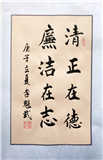 清正在德
廉洁在志
庚子立夏李魁武